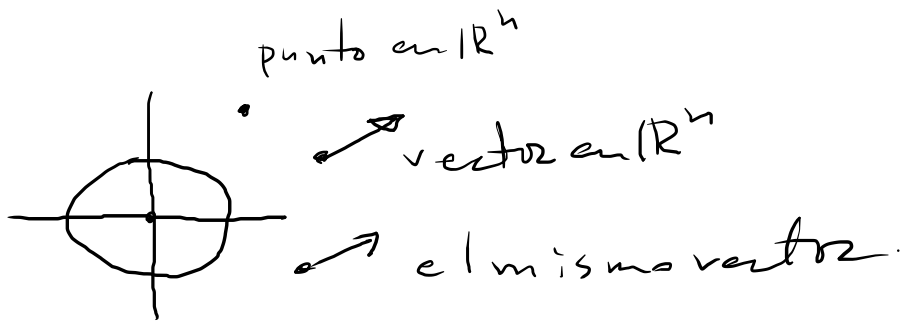 punto en ℝⁿ
vector en ℝⁿ
el mismo vector.